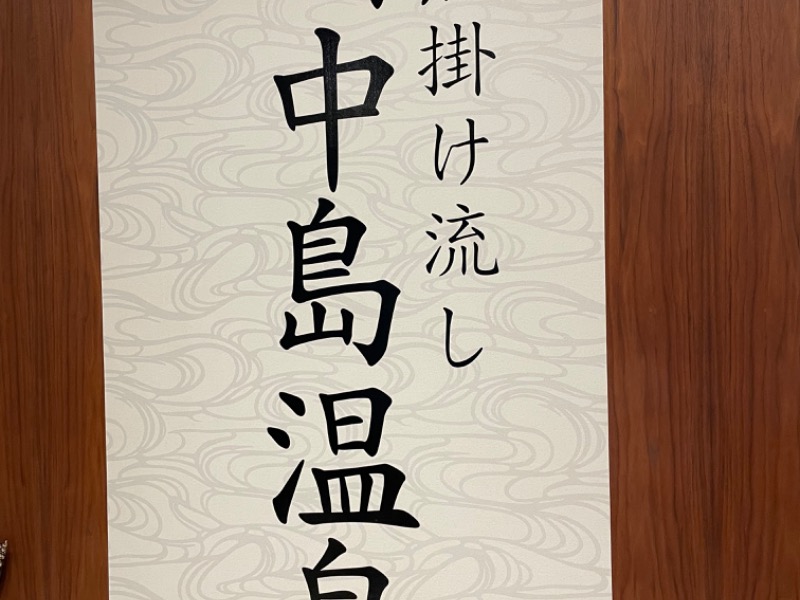 掛け流し
中島温泉